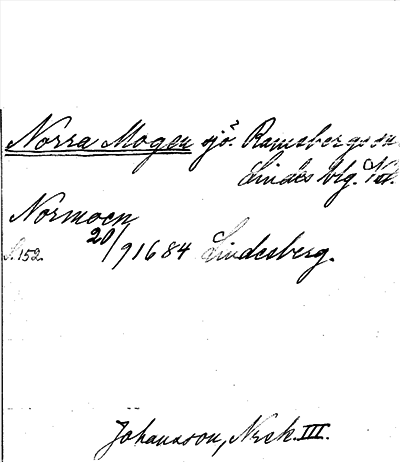 Norra Mogen sjö. Ramsbergs sn.
Lindes blg. Vstm.
Normoen
S. 152. 20/9 1684 Lindesberg.
Johansson, Nrck. III.